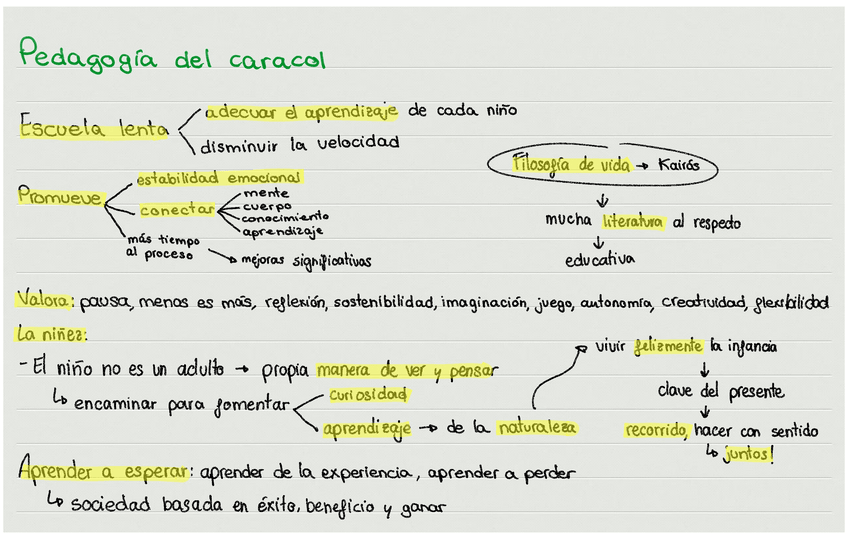 Pedagogía del caracol
Escuela lenta
adecuar el aprendizaje de cada niño
disminuir la velocidad
Filosofía de vida → Kairós
↓
mucha literatura al respedo
↓
educativa
Promueve
estabilidad emocional
conectar
mente
cuerpo
conocimiento
aprendizaje
más tiempo
al proceso
mejoras significativas
Valora: pausa, menos es más, reflexión, sostenibilidad, imaginación, juego, autonomía, creatividad, flexibilidad
La niñez:
- El niño no es un adulto → propia manera de ver y pensar
↳ encaminar para fomentar
curiosidad
aprendizaje → de la naturaleza
vivir felizmente la infancia
↓
clave del presente
↓
recorrido, hacer con sentido
↳ juntos!
Aprender a esperar: aprender de la experiencia, aprender a perder
↳ sociedad basada en éxito, beneficio y ganar